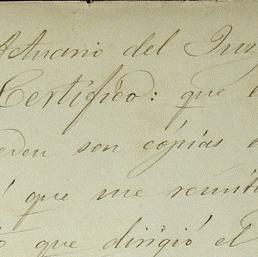 Actuario del Juz
Certifico: que l
eden son cópias
que me remit
que dirigió el